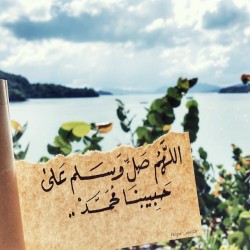 اللَّهُمَّ صَلِّ وَسَلِّم عَلَىٰ
حَبِيبِنَا مُحَمَّدْ ..